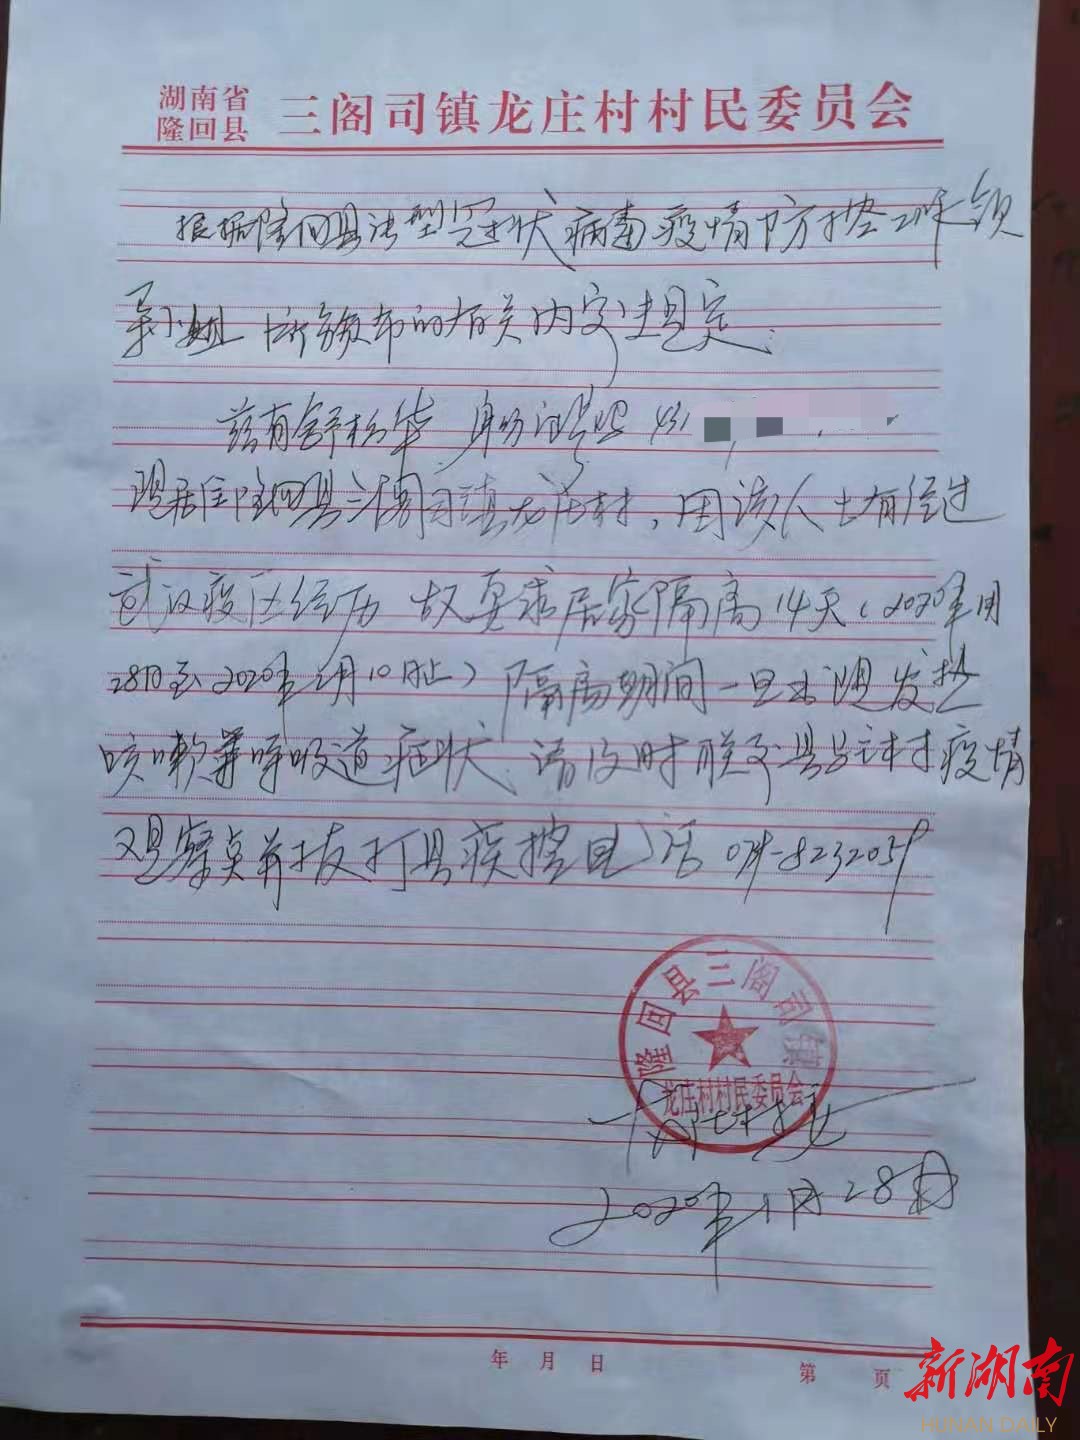 湖南省
隆回县
三阁司镇龙庄村村民委员会
根据隆回县新型冠状病毒疫情防控工作领
导小组所颁布的有关内容规定:
兹有舒 华 身份证号码
现居住隆回县三阁司镇龙庄村,因该人士有经过
武汉疫区经历 故要求居家隔离14天(2020年 月
28日至2020年2月10日止)隔离期间一旦出现发热
咳嗽等呼吸道症状,请及时联系县乡村疫情
观察点并拨打县疾控电话 -8232059
隆回县三阁司镇
龙庄村村民委员会
2020年1月28日
年 月 日
第 页
新湖南
HUNAN DAILY